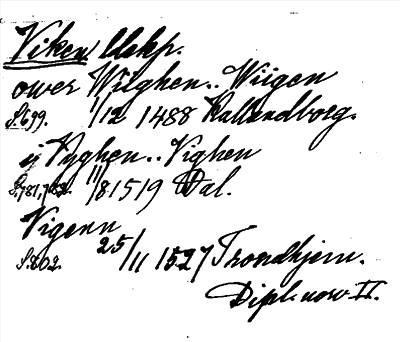 Viken Uskp.
ower Wiighen.. Wiigen
S.699. 1/12 1488 Kallundborg.
ij Vyghen.. Vighen
S.781,782. 11/8 1519 Dal.
Vigenn
S.802. 25/11 1527 Trondhjem.
Dipl. norv. II.